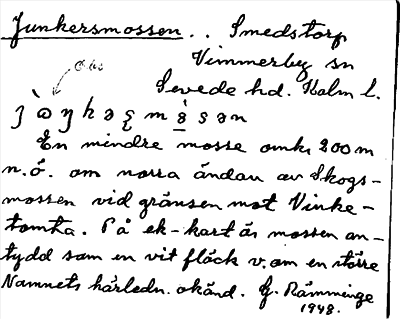 Junkersmossen . . Smedstorp
Obs
Vimmerby sn
Sevede hd. Kalm l.
En mindre mosse omkr. 200 m
n.ö. om norra ändan av Skogs-
mossen vid gränsen mot Vinke-
tomta. På ek-kart är mossen an-
tydd som en vit fläck v. om en större
Namnets härledn. okänd. G. Rämminge
1948.